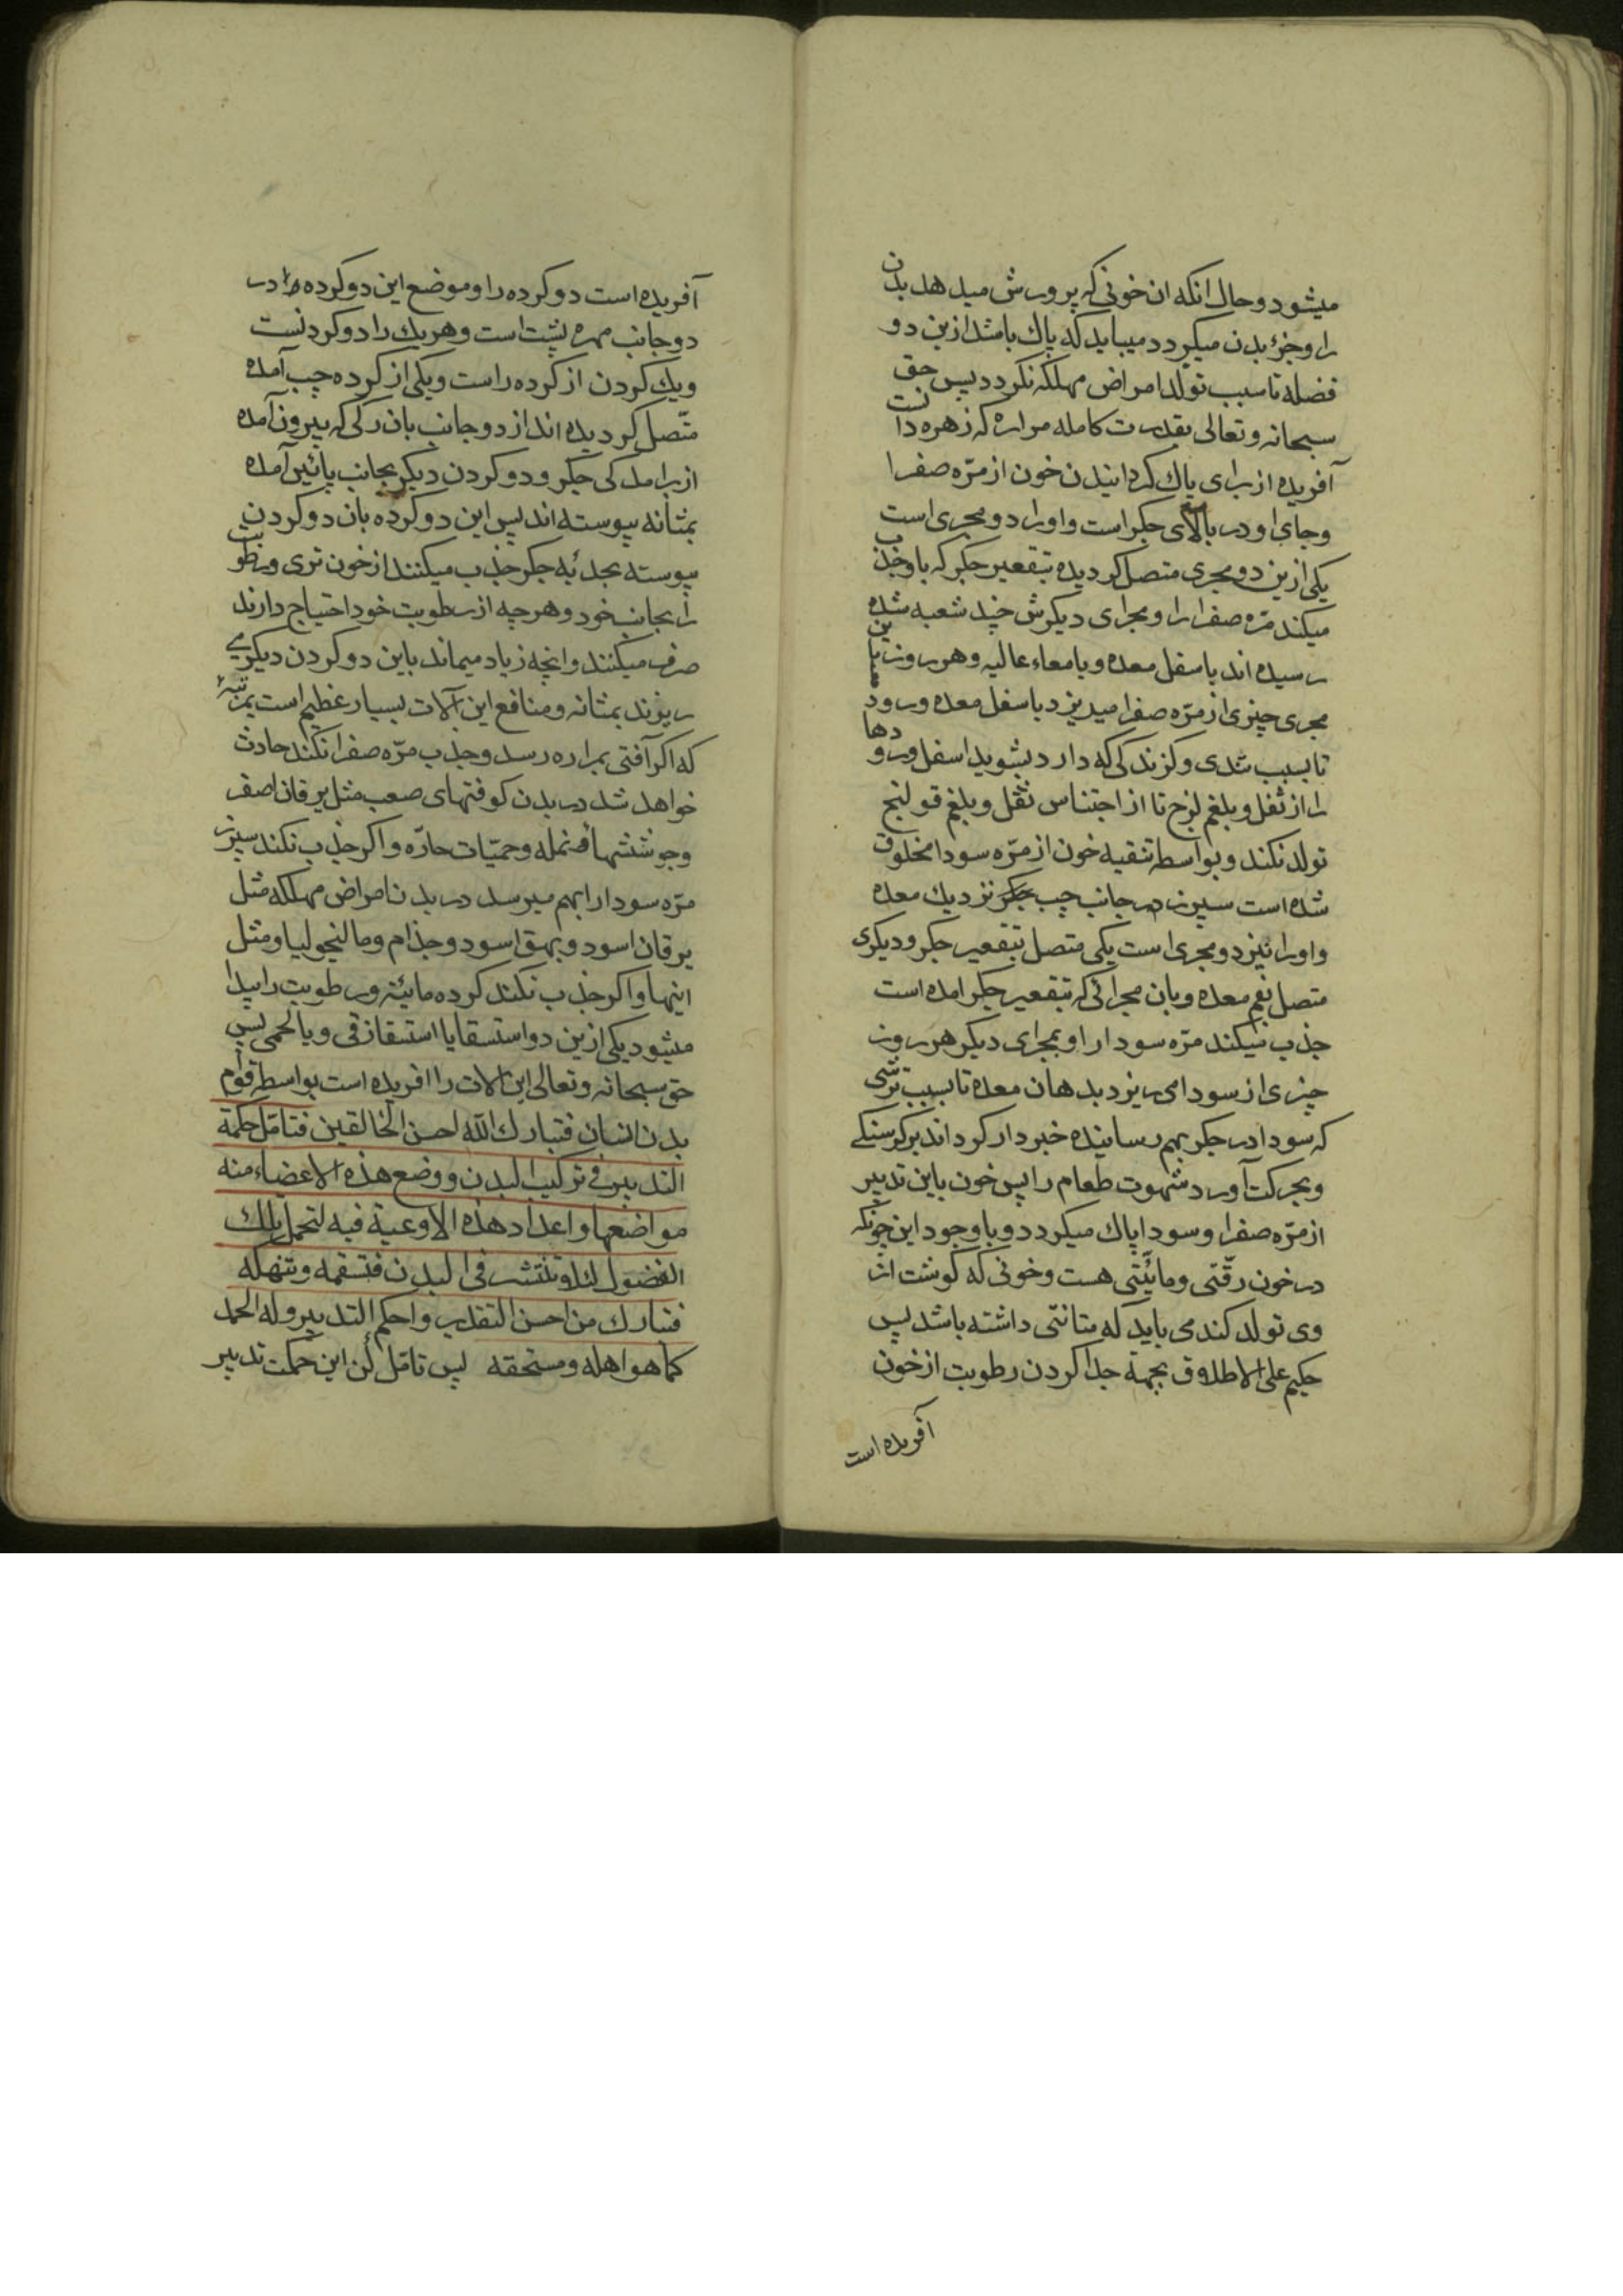 میشود و حال انکه ان خونی که پرورش میدهد بدن
را و جزؤ بدن میکردد میباید که پاك باشد ازین دو
فضله تا سبب تولد امراض مهلکه نکردد پس حق
سبحانه و تعالی بقدرت کامله مراره که زهره دا نست
آفریده از برای پاك کردانیدن خون از مرّه صفرا
وجای او در بالای جکر است و اورا دو مجری است
یکی ازین دو مجری متصل کردیده بتقعیر جکر که باو جذب
میکند مرّه صفرا را و مجرای دیکرش چند شعبه شده
رسیده اند باسفل معده و بامعاء عالیه و هر روز با ین
مجری چیزی از مرّه صفرا میریزد باسفل معده و رود
تا بسبب تندی و کزندکی که دارد بشوید اسفل و رو دها
را از ثفل و بلغم لزج تا از اجتناس ثفل و بلغم قولنج
تولد نکند و بواسطه تنقیه خون از مرّه سودا مخلوق
شده است سپرز در جانب چپ جکر نزدیك معده
واورا نیز دو مجری است یکی متصل بتقعیر جکر و دیکری
متصل بفم معده و بان مجرائی که بتقعیر جکر امده است
جذب میکند مرّه سودا را و بمجرای دیکر هر روز
چیزی از سودا می ریزد بدهان معده تا بسبب ترشی
که سودا در جکر بهم رسانیده خبردار کرداند بر کرسنکی
و بحرکت آورد شهوت طعام را پس خون باین تدبیر
از مرّه صفرا و سودا پاك میکردد و باوجود این چونکه
در خون رقّتی و مائیّتی هست و خونی که کوشت از
وی تولد کند می باید که متانتی داشته باشد پس
حکیم علی الاطلاق بجهة جدا کردن رطوبت از خون
آفریده است
آفریده است دو کرده را و موضع این دو کرده را در
دو جانب مهره پشت است و هریك را دو کردنست
ویك کردن از کرده راست و یکی از کرده چپ آمده
متّصل کردیده اند از دو جانب بان رکی که بیرون آمده
از برامدکی جکر و دو کردن دیکر بجانب پائین آمده
بمثانه پیوسته اند پس این دو کرده بان دو کردن
پیوسته بجدبه جکر جذب میکنند از خون تری و رطو بت
را بجانب خود و هرچه از رطوبت خود احتیاج دارند
صرف میکنند وانچه زیاد میماند باین دو کردن دیکر می
ریزند بمثانه و منافع این آلات بسیار عظیم است بمرتبهٔ
که اکر آفتی بمراره رسد و جذب مرّه صفرا نکند حادث
خواهد شد در بدن کوفتهای صعب مثل یرقان اصفر
وجوششها و نمله و حمیّات حارّه و اکر جذب نکند سپرز
مرّه سودا را بهم میرسد در بدن امراض مهلکه مثل
یرقان اسود و بهق اسود و جذام و مالنجولیا و مثل
اینها و اکر جذب نکند کرده مائیّة و رطوبت را پیدا
میشود یکی ازین دو استسقا یا استسقا زقی و یا لحمی پس
حق سبحانه و تعالی این آلات را افریده است بواسطه قوام
بدن انسان فتبارك الله احسن الخالقین فتامّل حکمة
التدبیر فی ترکیب البدن و وضع هذه الاعضاء منه
مواضعها و اعداد هذه الاوعیة فیه لتحمل تلك
الفضول لئلا تنتشر فی البدن فتسقمه و تنهکه
فتبارك من احسن التقدیر و احکم التدبیر وله الحمد
کما هو اهله و مستحقه پس تامّل کن این حکمت تدبیر